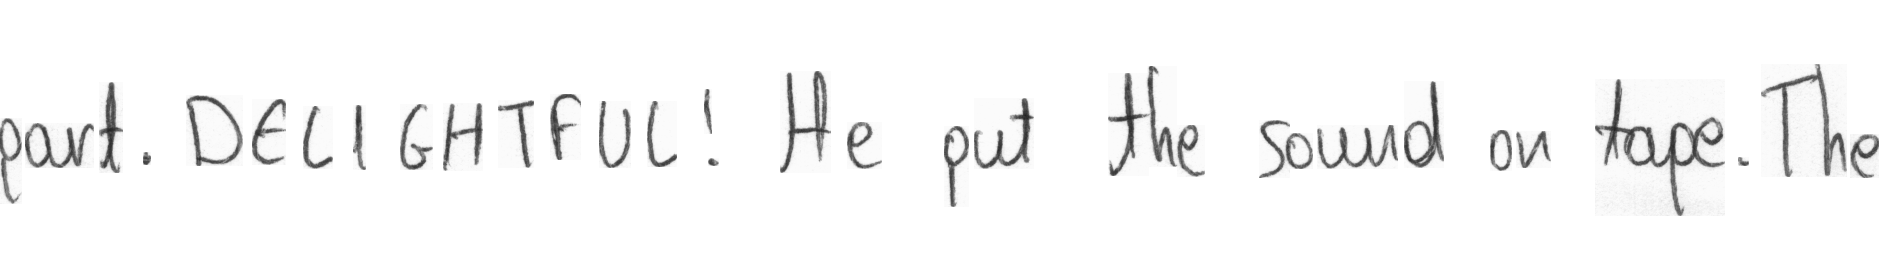 part. DELIGHTFUL! He put the sound on tape. The